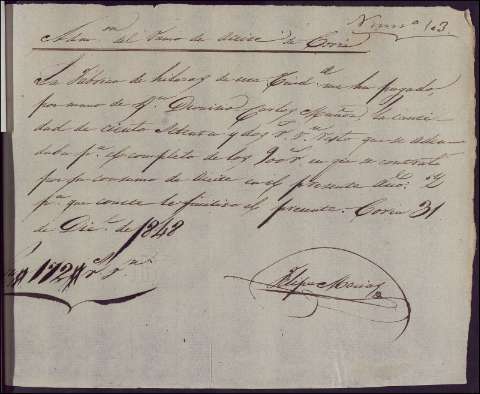 Numº 103.
Admon del Ramo de Aceite de Coria
La Fabrica de hilaras de esta Ciudd me ha pagado,
por mano de Dn Dionisio Carlos Muñoz, la canti-
dad de ciento setenta y dos rs vn resto que se adeu-
daba pa el completo de los 900 rs en que se contrató
por su consumo de Aceite en el presente Año: Y
pa que conste le firmo el presente. Coria 31
de Dice. de 1848
Son # 172 # rs vn
Felipe Macias